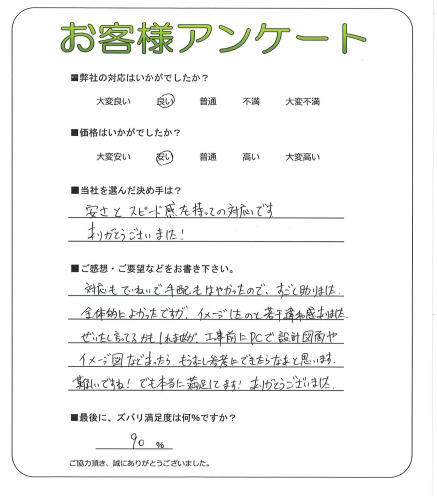 お客様アンケート
■弊社の対応はいかがでしたか？
大変良い 良い 普通 不満 大変不満
■価格はいかがでしたか？
大変安い 安い 普通 高い 大変高い
■当社を選んだ決め手は？
安さとスピード感を持っての対応です
ありがとうございました！
■ご感想・ご要望などをお書き下さい。
対応もていねいで手配もはやかったので、すごく助りました
全体的によかったですが、イメージしたのと若干違和感ありました
ぜいたく言ってるかもしれませんが、工事前にPCで設計図面や
イメージ図などあったら、もう少し参考にできたらなあと思います.
難しいですね！でも本当に満足してます！ありがとうございました
■最後に、ズバリ満足度は何%ですか？
90 %
ご協力頂き、誠にありがとうございました。